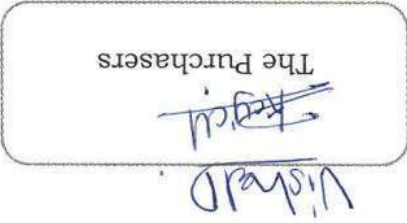 Vishal
The Purchasers